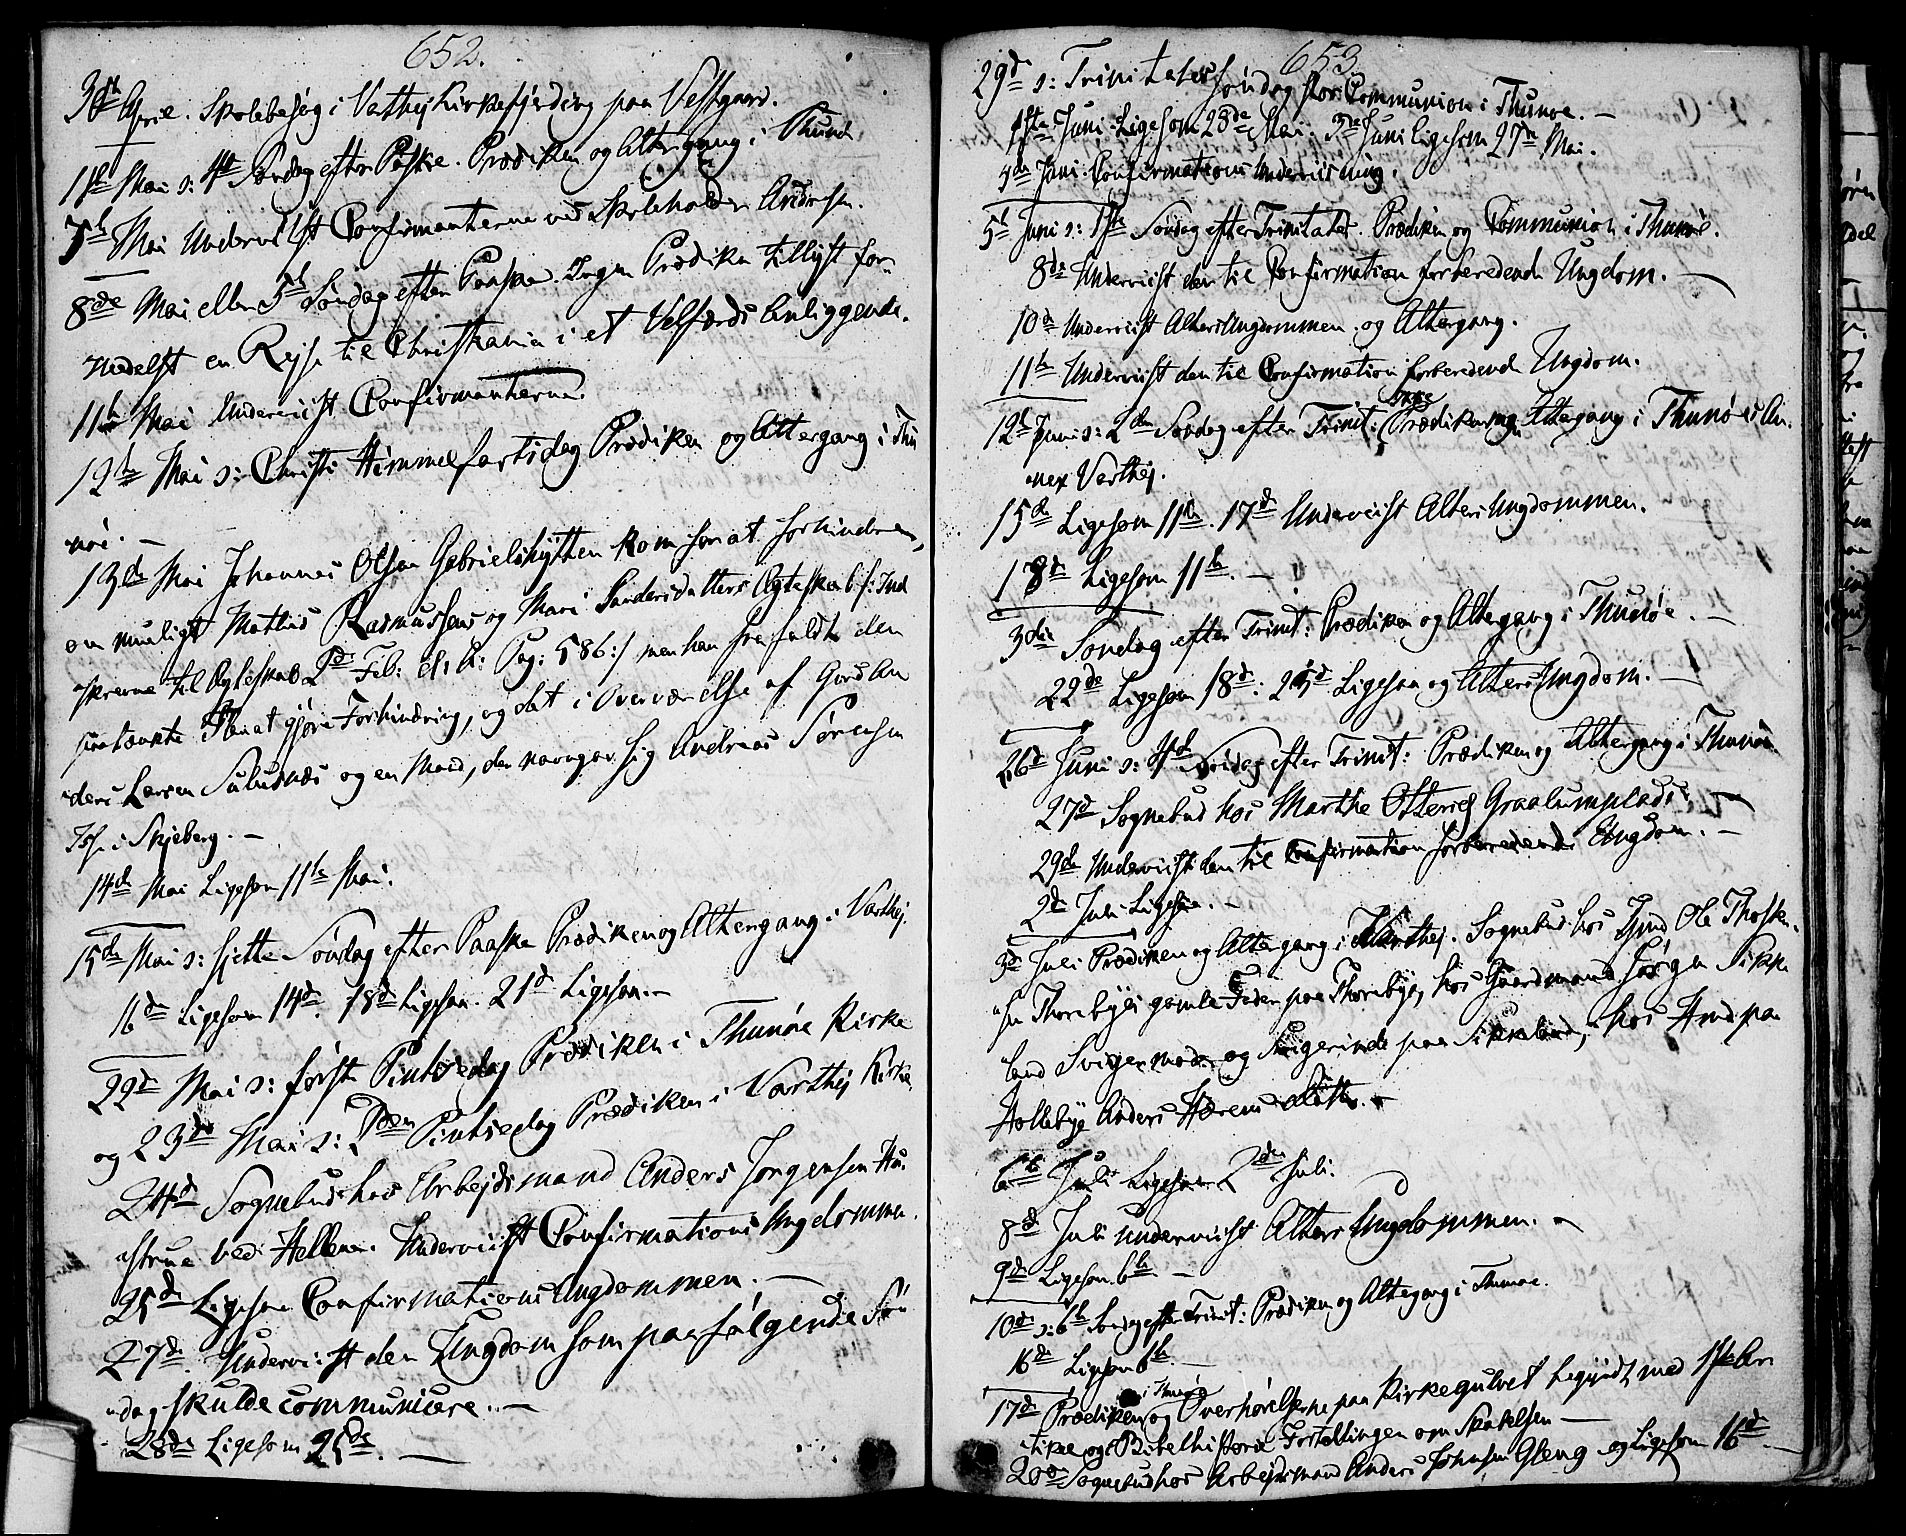 652.
30th April. Skolebesøg i Varthej Kirkefjerding paa Vestgaard.
1ste Mai s: 4de Søndag efter Paaske. Prædiken og Altergang i Thunø.
7de Mai Underviist Confirmanterne ved Skoleholder Andersen.
8de Mai eller 3de Søndag efter Paaske. Ingen Prædiken tillyst for-
medelst en Rejse til Christiania i et Velfærds Anliggende.
11te Mai Underviist Confirmanterne.
12te Mai s: Christi Himmelfartsdag Prædiken og Altergang i Thu
nöe. —
13de Mai Johannes Olsen Gabrielshytten kom for at forhindre,
om muligt Mathis Rasmussens og Mari Sandersdatters Ægteskab /: Ind
skrevne til Ægteskab 2de Feb: d: A: Pag: 586:/ men han frafaldt den
paatænkte Plan at gjøre Forhindring, og det i Overværelse af Gaard An
ders Larsen Sulusnæs og en Mand, der navngav sig Andreas Sörensen
i Skjeberg. —
14de Mai Ligesom 11te Mai.
15de Mai s: sjette Søndag efter Paaske Prædiken og Altergang i Varthej.
16de Ligesom 14de. 18de Ligesom. 21de Ligesom. —
22de Mai s: første Pintsedag Prædiken i Thunöe Kirke
og 23de Mai s: 2den Pintsedag Prædiken i Varthej Kirke.
24de Sognebud hos Arbejdsmand Anders Jørgensen Hu-
strue ved Hellene. Underviist Confirmations Ungdommen.
25de Ligesom Confirmations Ungdommen. —
27de Underviist den Ungdom som paafølgende Søn
dag skulde communicere. —
28de Ligesom 25de. —
653
29de s: Trinitatis Søndag stor Communion i Thunøe. —
1ste Juni Ligesom 28de Mai. 3de Juni ligesom 27de Mai.
4de Juni Confirmations Underviisning.
5te Juni s: 1ste Søndag efter Trinitatis. Prædiken og Communion i Thunøe.
8de Underviist den til Confirmation forberedende Ungdom. —
10de Underviist Alters Ungdommen og Altergang.
11te Underviist den til Confirmation forberedende Ungdom.
12te Juni s: 2den Søndag efter Trinit: Prædiken og Altergang i Thunøes An-
nex Varthej.
15de Ligesom 11te. 17de Underviist Alters Ungdommen.
18de Ligesom 11te. —
3die Søndag efter Trinit: Prædiken og Altergang i Thunöe. —
22de Ligesom 18de: 25de Ligesom og Alters Ungdom. —
26de Juni s: 4de Søndag efter Trinit: Prædiken og Altergang i Thunøe
27de Sognebud hos Marthe Ottersd Graalumplads. —
29de Underviist den til Confirmation forberedende Ungdom. —
2de Juli Ligesom. —
3de Juli Prædiken og Altergang i Varthej. Sognebud hos Ole Thorsten-
sen Thorebyes gamle Fader paa Thorebye, hos Gaardmand Jörgen Sikke
land Svigermoder og Svigerinde paa Sikkeland, hos paa
Hollebye Anders
6te Juli Ligesom 2den Juli.
8de Juli Underviist Alters Ungdommen. —
9de Ligesom 6te. —
10de s: 6te Søndag efter Trinit: Prædiken og Altergang i Thunøe.
16de Ligesom 6te. —
i Thunöe
17de Prædiken og Overhørelserne paa Kirkegulvet begyndt med 1ste Ar
tikel og i Bibelhistorie Fortællingen om Skabelsen —
20de Sognebud hos Arbejdsmand Anders Johnsen Gleng og Ligesom 16de. —